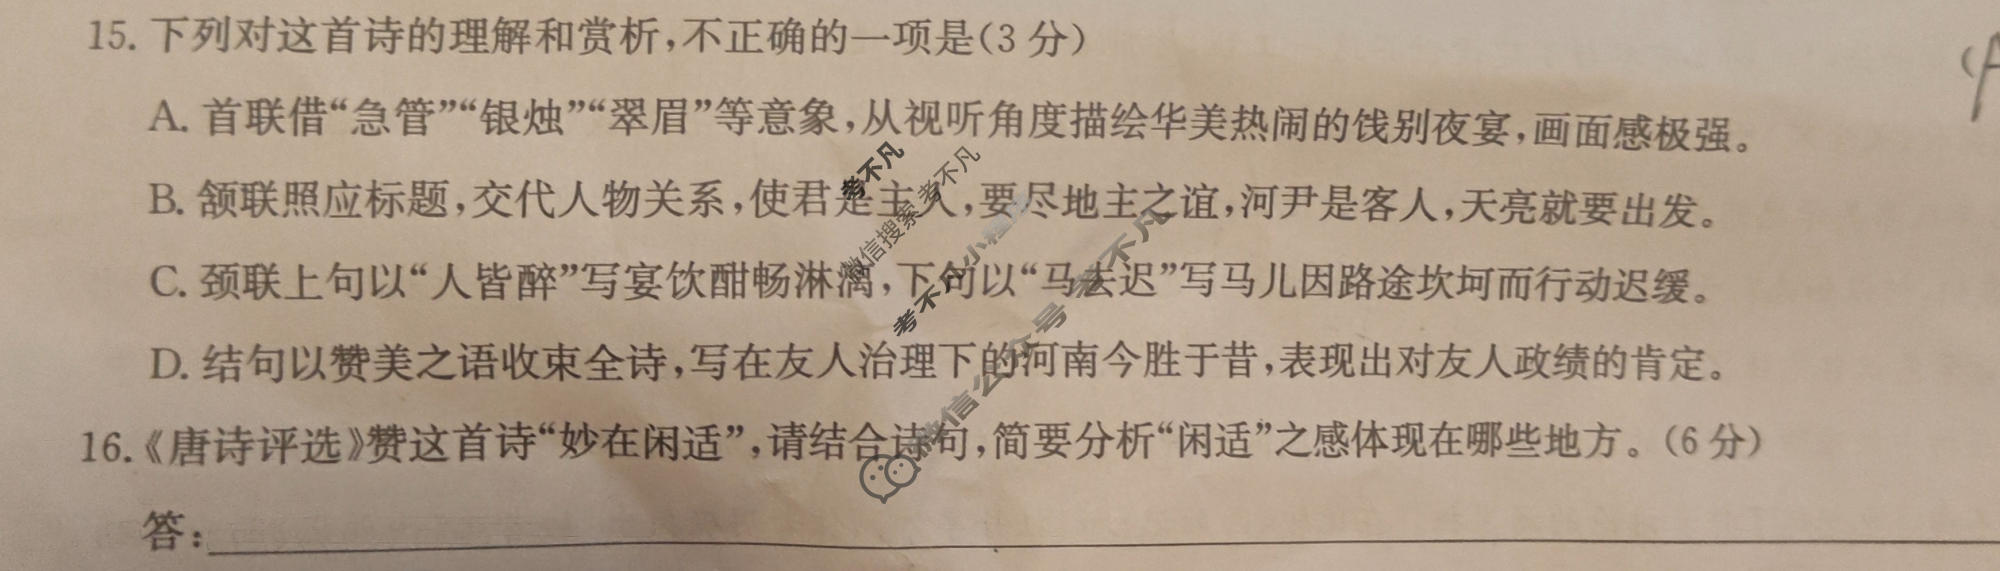 15.下列对这首诗的理解和赏析,不正确的一项是(3分)
A.首联借“急管”“银烛”“翠眉”等意象,从视听角度描绘华美热闹的饯别夜宴,画面感极强。
B.颔联照应标题,交代人物关系,使君是主人,要尽地主之谊,河尹是客人,天亮就要出发。
C.颈联上句以“人皆醉”写宴饮酣畅淋漓,下句以“马去迟”写马儿因路途坎坷而行动迟缓。
D.结句以赞美之语收束全诗,写在友人治理下的河南今胜于昔,表现出对友人政绩的肯定。
16.《唐诗评选》赞这首诗“妙在闲适”,请结合诗句,简要分析“闲适”之感体现在哪些地方。(6分)
答:
考不凡
微信搜索考不凡
考不凡小程序
微信公众号 考不凡
(A